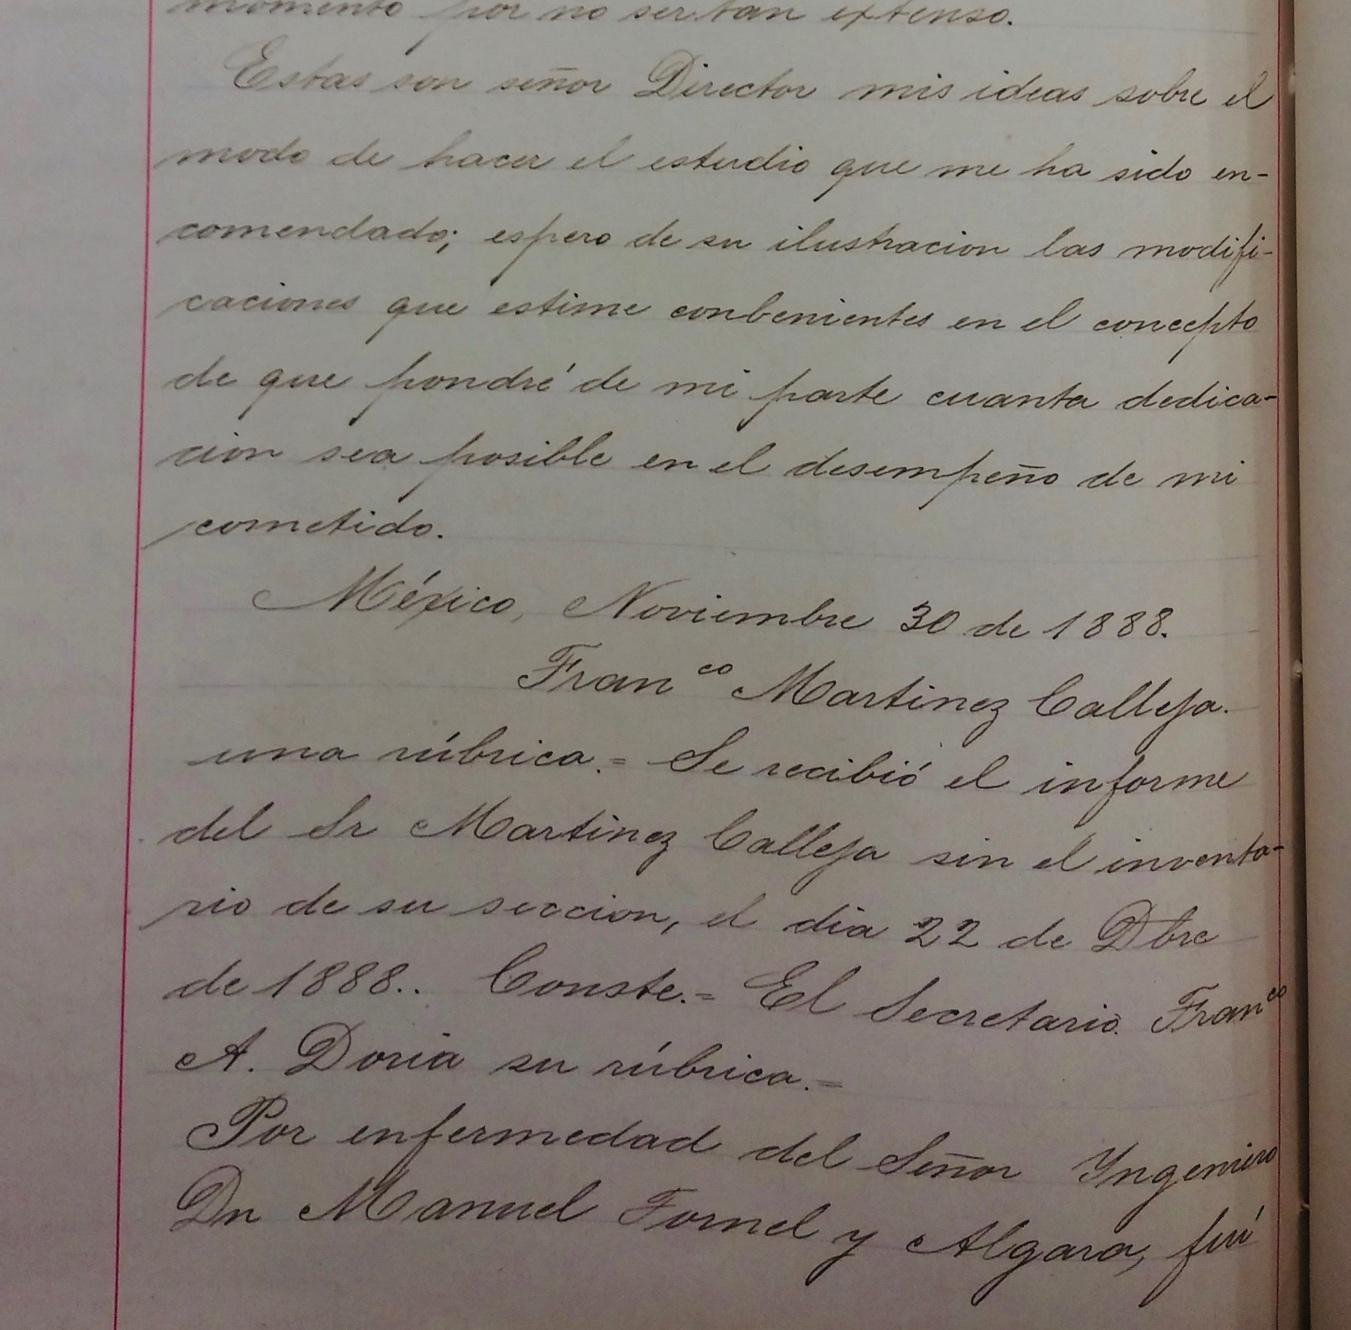 momento por no ser tan extenso.
Estas son señor Director mis ideas sobre el
modo de hacer el estudio que me ha sido en-
comendado; espero de su ilustracion las modifi-
caciones que estime conbenientes en el concepto
de que pondré de mi parte cuanta dedica-
cion sea posible en el desempeño de mi
cometido.
México, Noviembre 30 de 1888.
Fran.co Martinez Calleja.
una rúbrica.= Se recibió el informe
del Sr Martinez Calleja sin el inventa-
rio de su seccion, el dia 22 de Dbre
de 1888.. Conste.= El Secretario. Franco
A. Doria su rúbrica.=
Por enfermedad del Señor Yngeniero
Dn Manuel Fornel y Algara, fuí